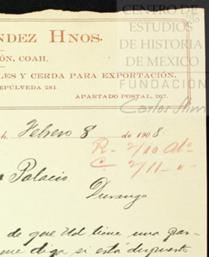 NDEZ HNOS.
ÓN, COAH.
LES Y CERDA PARA EXPORTACIÓN,
SEPÚLVEDA 281. APARTADO POSTAL, 267.
CENTRO DE
ESTUDIOS
DE HISTORIA
DE MEXICO
FUNDACIÓN
Carlos Slim
Febrero 8 de 1908
Palacio
Durango
de que Ud tiene una
me diga si está dispuesto